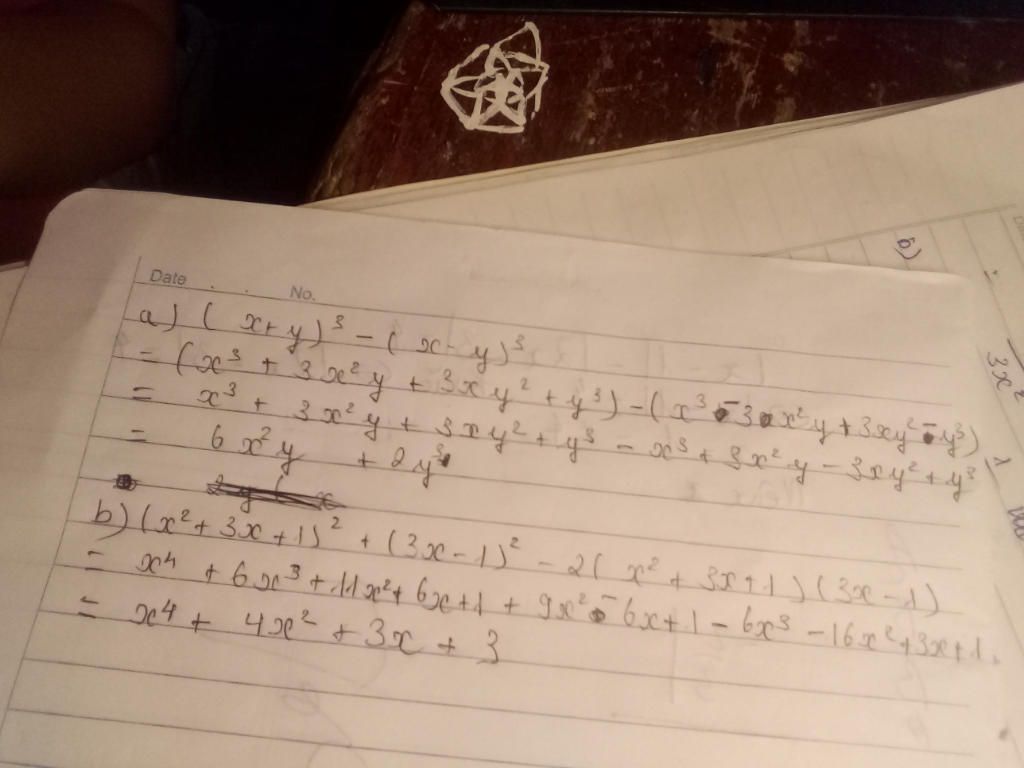 Date . . No.
a) (x+y)³ - (x-y)³
= (x³ + 3x²y + 3xy² + y³) - (x³ - 3x²y + 3xy² - y³)
= x³ + 3x²y + 3xy² + y³ - x³ + 3x²y - 3xy² + y³
= 6x²y + 2y³
b) (x² + 3x + 1)² + (3x - 1)² - 2(x² + 3x + 1)(3x - 1)
= x⁴ + 6x³ + 11x² + 6x + 1 + 9x² - 6x + 1 - 6x³ - 16x² + 3x + 1.
= x⁴ + 4x² + 3x + 3
b)
3x²
1